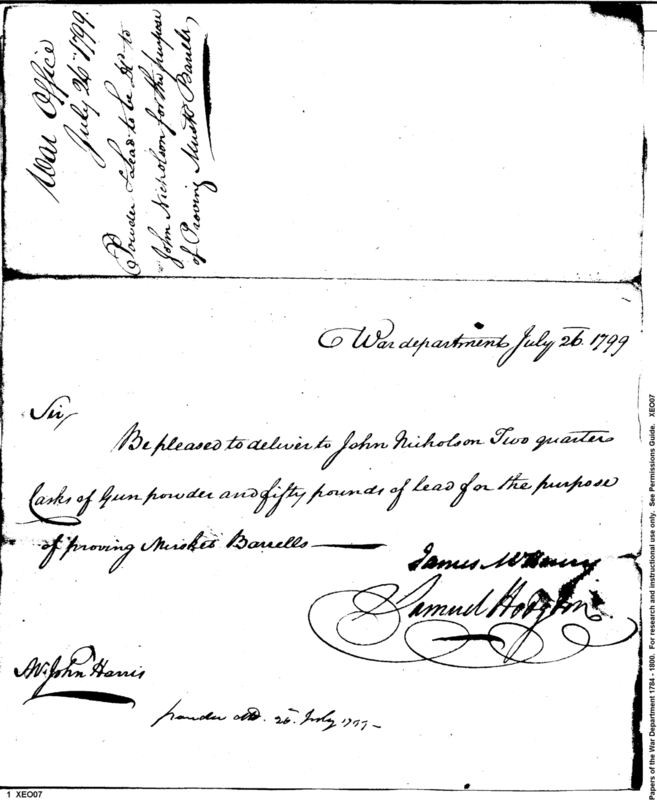 War Office
July 26th 1799.
Powder & Lead to be dd to
John Nicholson for the purpose
of Proving Muskt Barrells
1
War department July 26. 1799
Sir,
Be pleased to deliver to John Nicholson Two quarters
Casks of Gun powder and fifty pounds of lead for the purpose
of proving Musket Barrells
James McHenry
Samuel Hodgdon
Mr. John Harris
powder dd. 26 July 1799
Papers of the War Department 1784 - 1800. For research and instructional use only. See Permissions Guide. XEO07
1 XEO07